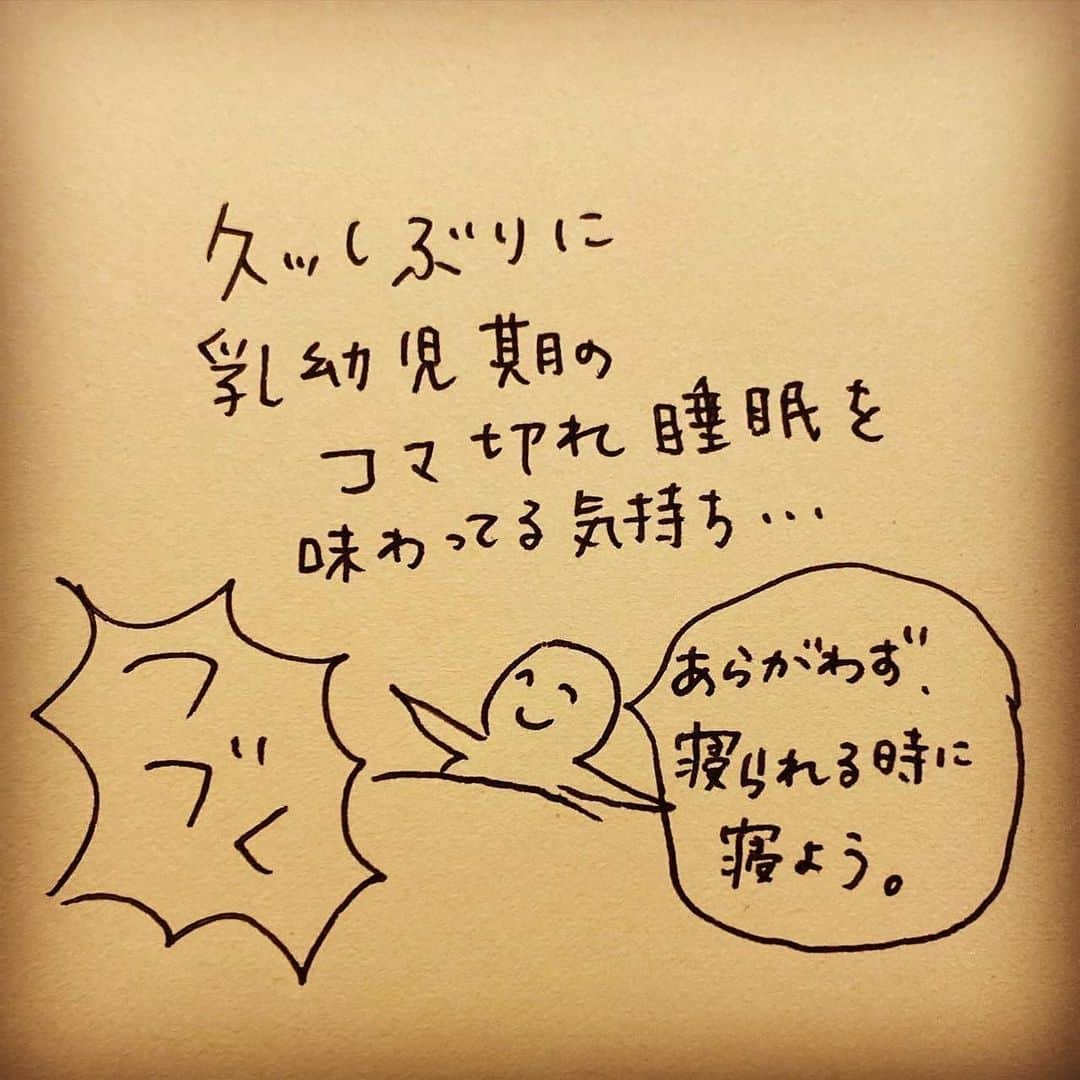 久ッしぶりに
乳幼児期の
コマ切れ睡眠を
味わってる気持ち...
あらがわず、
寝られる時に
寝よう。
つづく